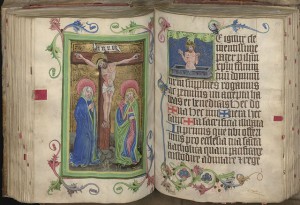 E igitur cle
mentissime
pater
filium tu
um dominu
supplices rogamus
ac petimus uti accepta ha
beas et benedicas hec do
na hec munera hec
sancta sacrificia illibata
Inprimis que tibi offeri
mus pro ecclesia tua sancta
katholica quam pacificare
custodire adunare et rege